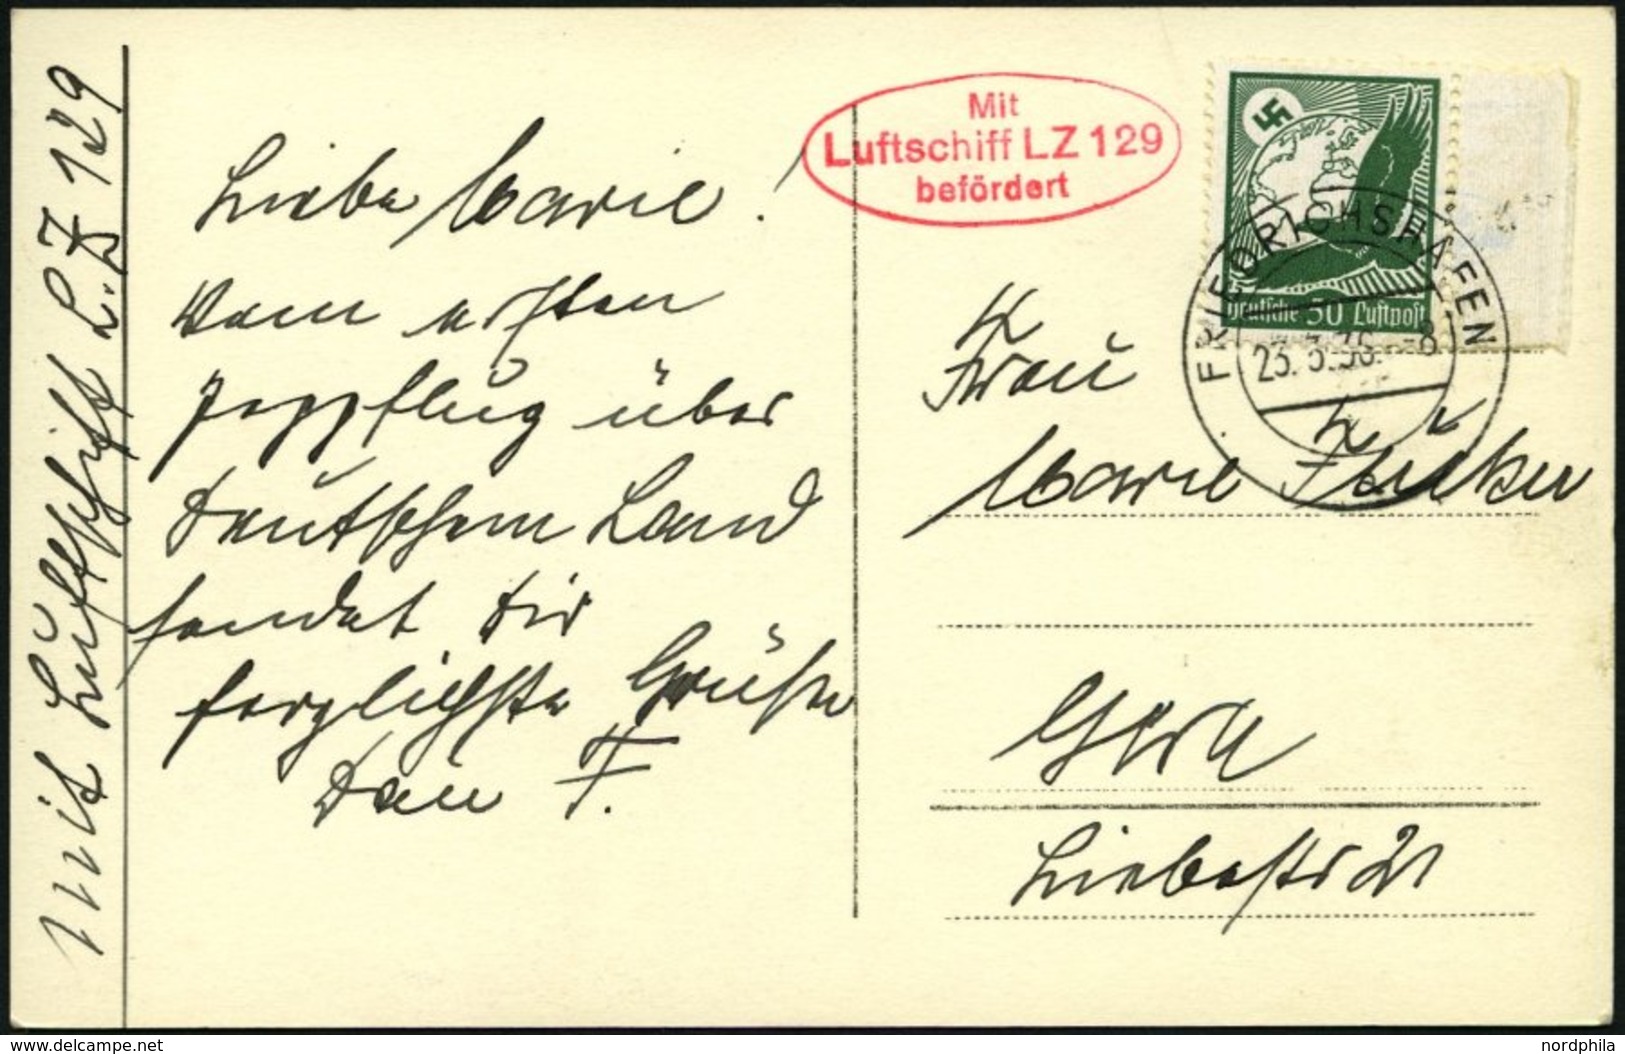 mit Luftschiff L.Z 129
Liebe Marie!
Vom ersten
Postflug über
Deutschem Land
sendet Dir
herzlichste Grüße
Dein F.
Mit
Luftschiff LZ 129
befördert
Deutsche 50 Luftpost
FRIEDRICHSHAFEN
23. 3. 36. -8
Frau
Marie
Gera
Liebestr 21
www.delcampe.net
nordphila